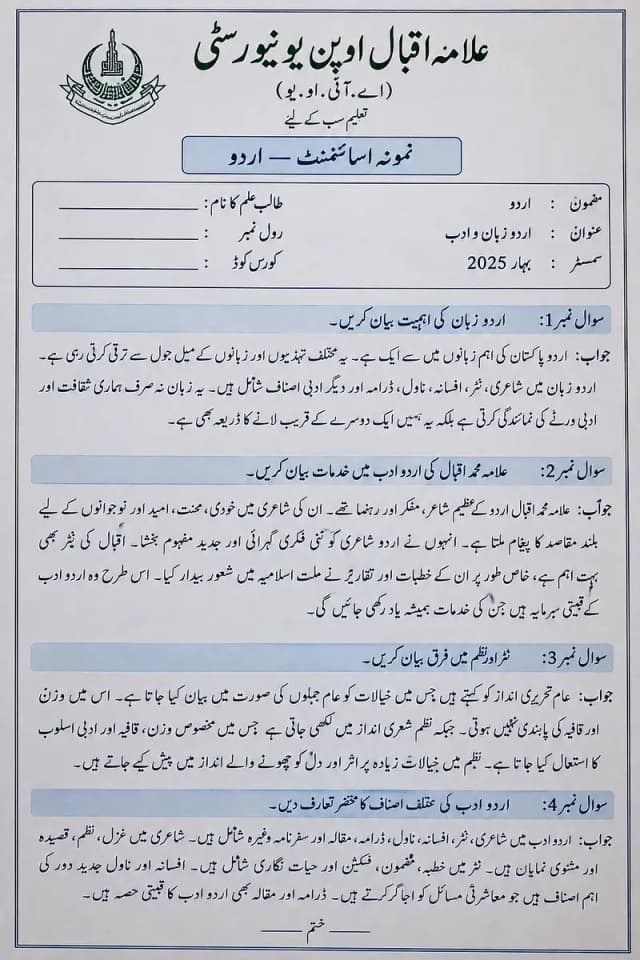 علامہ اقبال اوپن یونیورسٹی
(اے.آئی.او.یو)
تعلیم سب کے لیئے
نمونہ اسائنمنٹ — اردو
مضمون : اردو طالب علم کا نام: ____________
عنوان : اردو زبان و ادب رول نمبر : ____________
سمسٹر : بہار 2025 کورس کوڈ : ____________
سوال نمبر 1: اردو زبان کی اہمیت بیان کریں۔
جواب: اردو پاکستان کی اہم زبانوں میں سے ایک ہے۔ یہ مختلف تہذیوں اور زبانوں کے میل جول سے ترقی کرتی رہی ہے۔
اردو زبان میں شاعری، نثر، افسانہ، ناول، ڈرامہ اور دیگر ادبی اصناف شامل ہیں۔ یہ زبان نہ صرف ہماری ثقافت اور
ادبی ورثے کی نمائندگی کرتی ہے بلکہ یہ ہمیں ایک دوسرے کے قریب لانے کا ذریعہ بھی ہے۔
سوال نمبر 2: علامہ محمد اقبال کی اردو ادب میں خدمات بیان کریں۔
جواب: علامہ محمد اقبال اردو کے عظیم شاعر، مفکر اور رہنما تھے۔ ان کی شاعری میں خودی، محنت، امید اور نوجوانوں کے لیے
بلند مقاصد کا پیغام ملتا ہے۔ انہوں نے اردو شاعری کو نئی فکری گہرائی اور جدید مفہوم بخشا۔ اقبال کی نثر بھی
بہت اہم ہے، خاص طور پر ان کے خطبات اور تقاریر نے ملت اسلامیہ میں شعور بیدار کیا۔ اس طرح وہ اردو ادب
کے قیتی سرمایہ ہیں جن کی خدمات ہمیشہ یاد رکھی جائیں گی۔
سوال نمبر 3: نثر اور نظم میں فرق بیان کریں۔
جواب: عام تحریری انداز کو کہتے ہیں جس میں خیالات کو عام جملوں کی صورت میں بیان کیا جاتا ہے۔ اس میں وزن
اور قافیہ کی پابندی نہیں ہوتی۔ جبکہ نظم شعری انداز میں لکھی جاتی ہے جس میں مخصوص وزن، قافیہ اور ادبی اسلوب
کا استعال کیا جاتا ہے۔ نظم میں خیالات زیادہ پر اثر اور دل کو چھونے والے انداز میں پیش کیے جاتے ہیں۔
سوال نمبر 4: اردو ادب کی مختلف اصناف کا مختصر تعارف دیں۔
جواب: اردو ادب میں شاعری، نثر، افسانہ، ناول، ڈرامہ، مقالہ اور سفرنامہ وغیرہ شامل ہیں۔ شاعری میں غزل، نظم، قصیدہ
اور مثنوی نمایاں ہیں۔ نثر میں خطبہ، مضمون، فکشن اور حیات نگاری شامل ہیں۔ افسانہ اور ناول جدید دور کی
اہم اصناف ہیں جو معاشرتی مسائل کو اجاگر کرتے ہیں۔ ڈرامہ اور مقالہ بھی اردو ادب کا قیتی حصہ ہیں۔
—— ختم ——